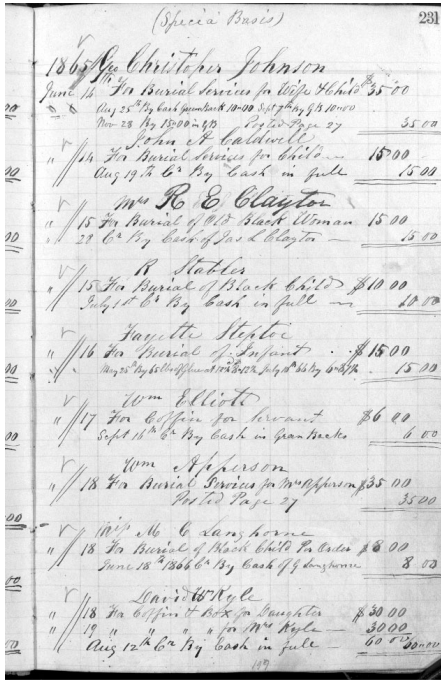 (Specia Basis)
231
1865 Geo Christopher Johnson
June 14 For Burial Services for Wife & Child $35.00
Aug 25th By Cash Green Back 10-00 Sept 7th By GB 10-00
Nov 28 By 15.00 in GB Posted Page 27 35.00
John A Caldwell
" 14 For Burial Services for Child 15.00
Aug 19th Cr By Cash in full 15.00
Mrs R E Clayton
" 15 For Burial of Old Black Woman 15 00
" 29 Cr By Cash of Jas L Clayton 15.00
R Stabler
" 15 For Burial of Black Child $10 00
July 1st Cr By Cash in full 10.00
Fayette Steptoe
" 16 For Burial of Infant $15 00
May 25th By July 10th 66 By 15.00
Wm Elliott
" 17 For Coffin for Servant $6 00
Sept 16th Cr By Cash in Gran Backs 6 00
Wm Apperson
" 18 For Burial Services for Mrs Apperson $35 00
Posted Page 27 35 00
M C Langhorne
" 18 For Burial of Black Child Per Order $8 00
June 18th 1866 Cr By Cash of G Langhorne 8 00
David W Kyle
" 18 For Coffin & Box for Daughter $30 00
" 19 " " " " for Mrs Kyle 30 00
Aug 12th Cr By Cash in full 60 00